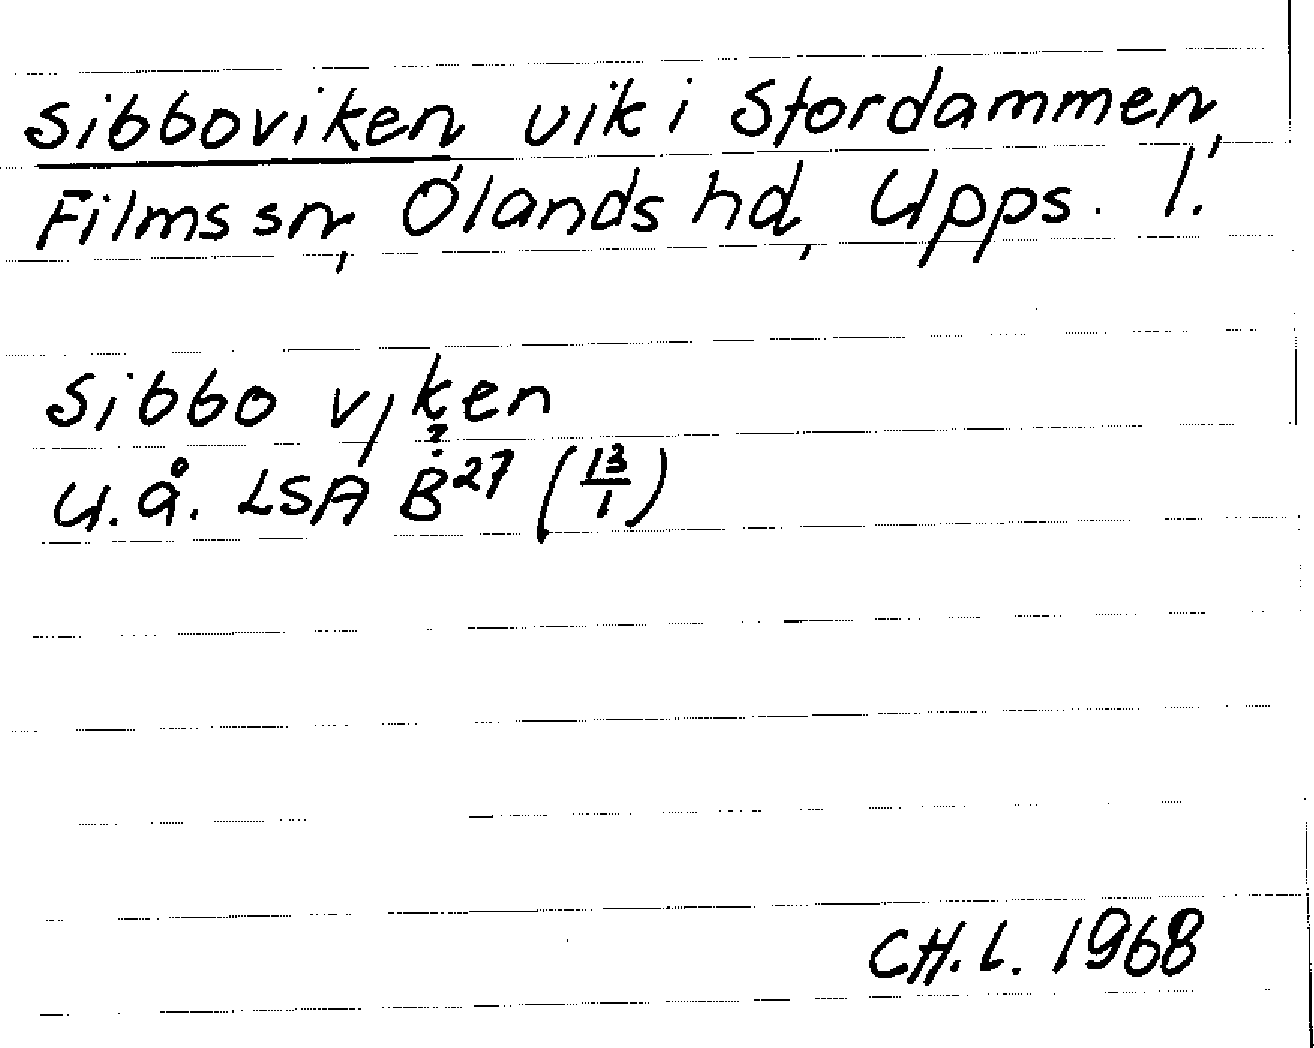 Sibboviken vik i Stordammen,
Films sn, Olands hd, Upps. l.
Sibbo vjken
?
u.å. LSA B²⁷ (13/1)
CH.L. 1968